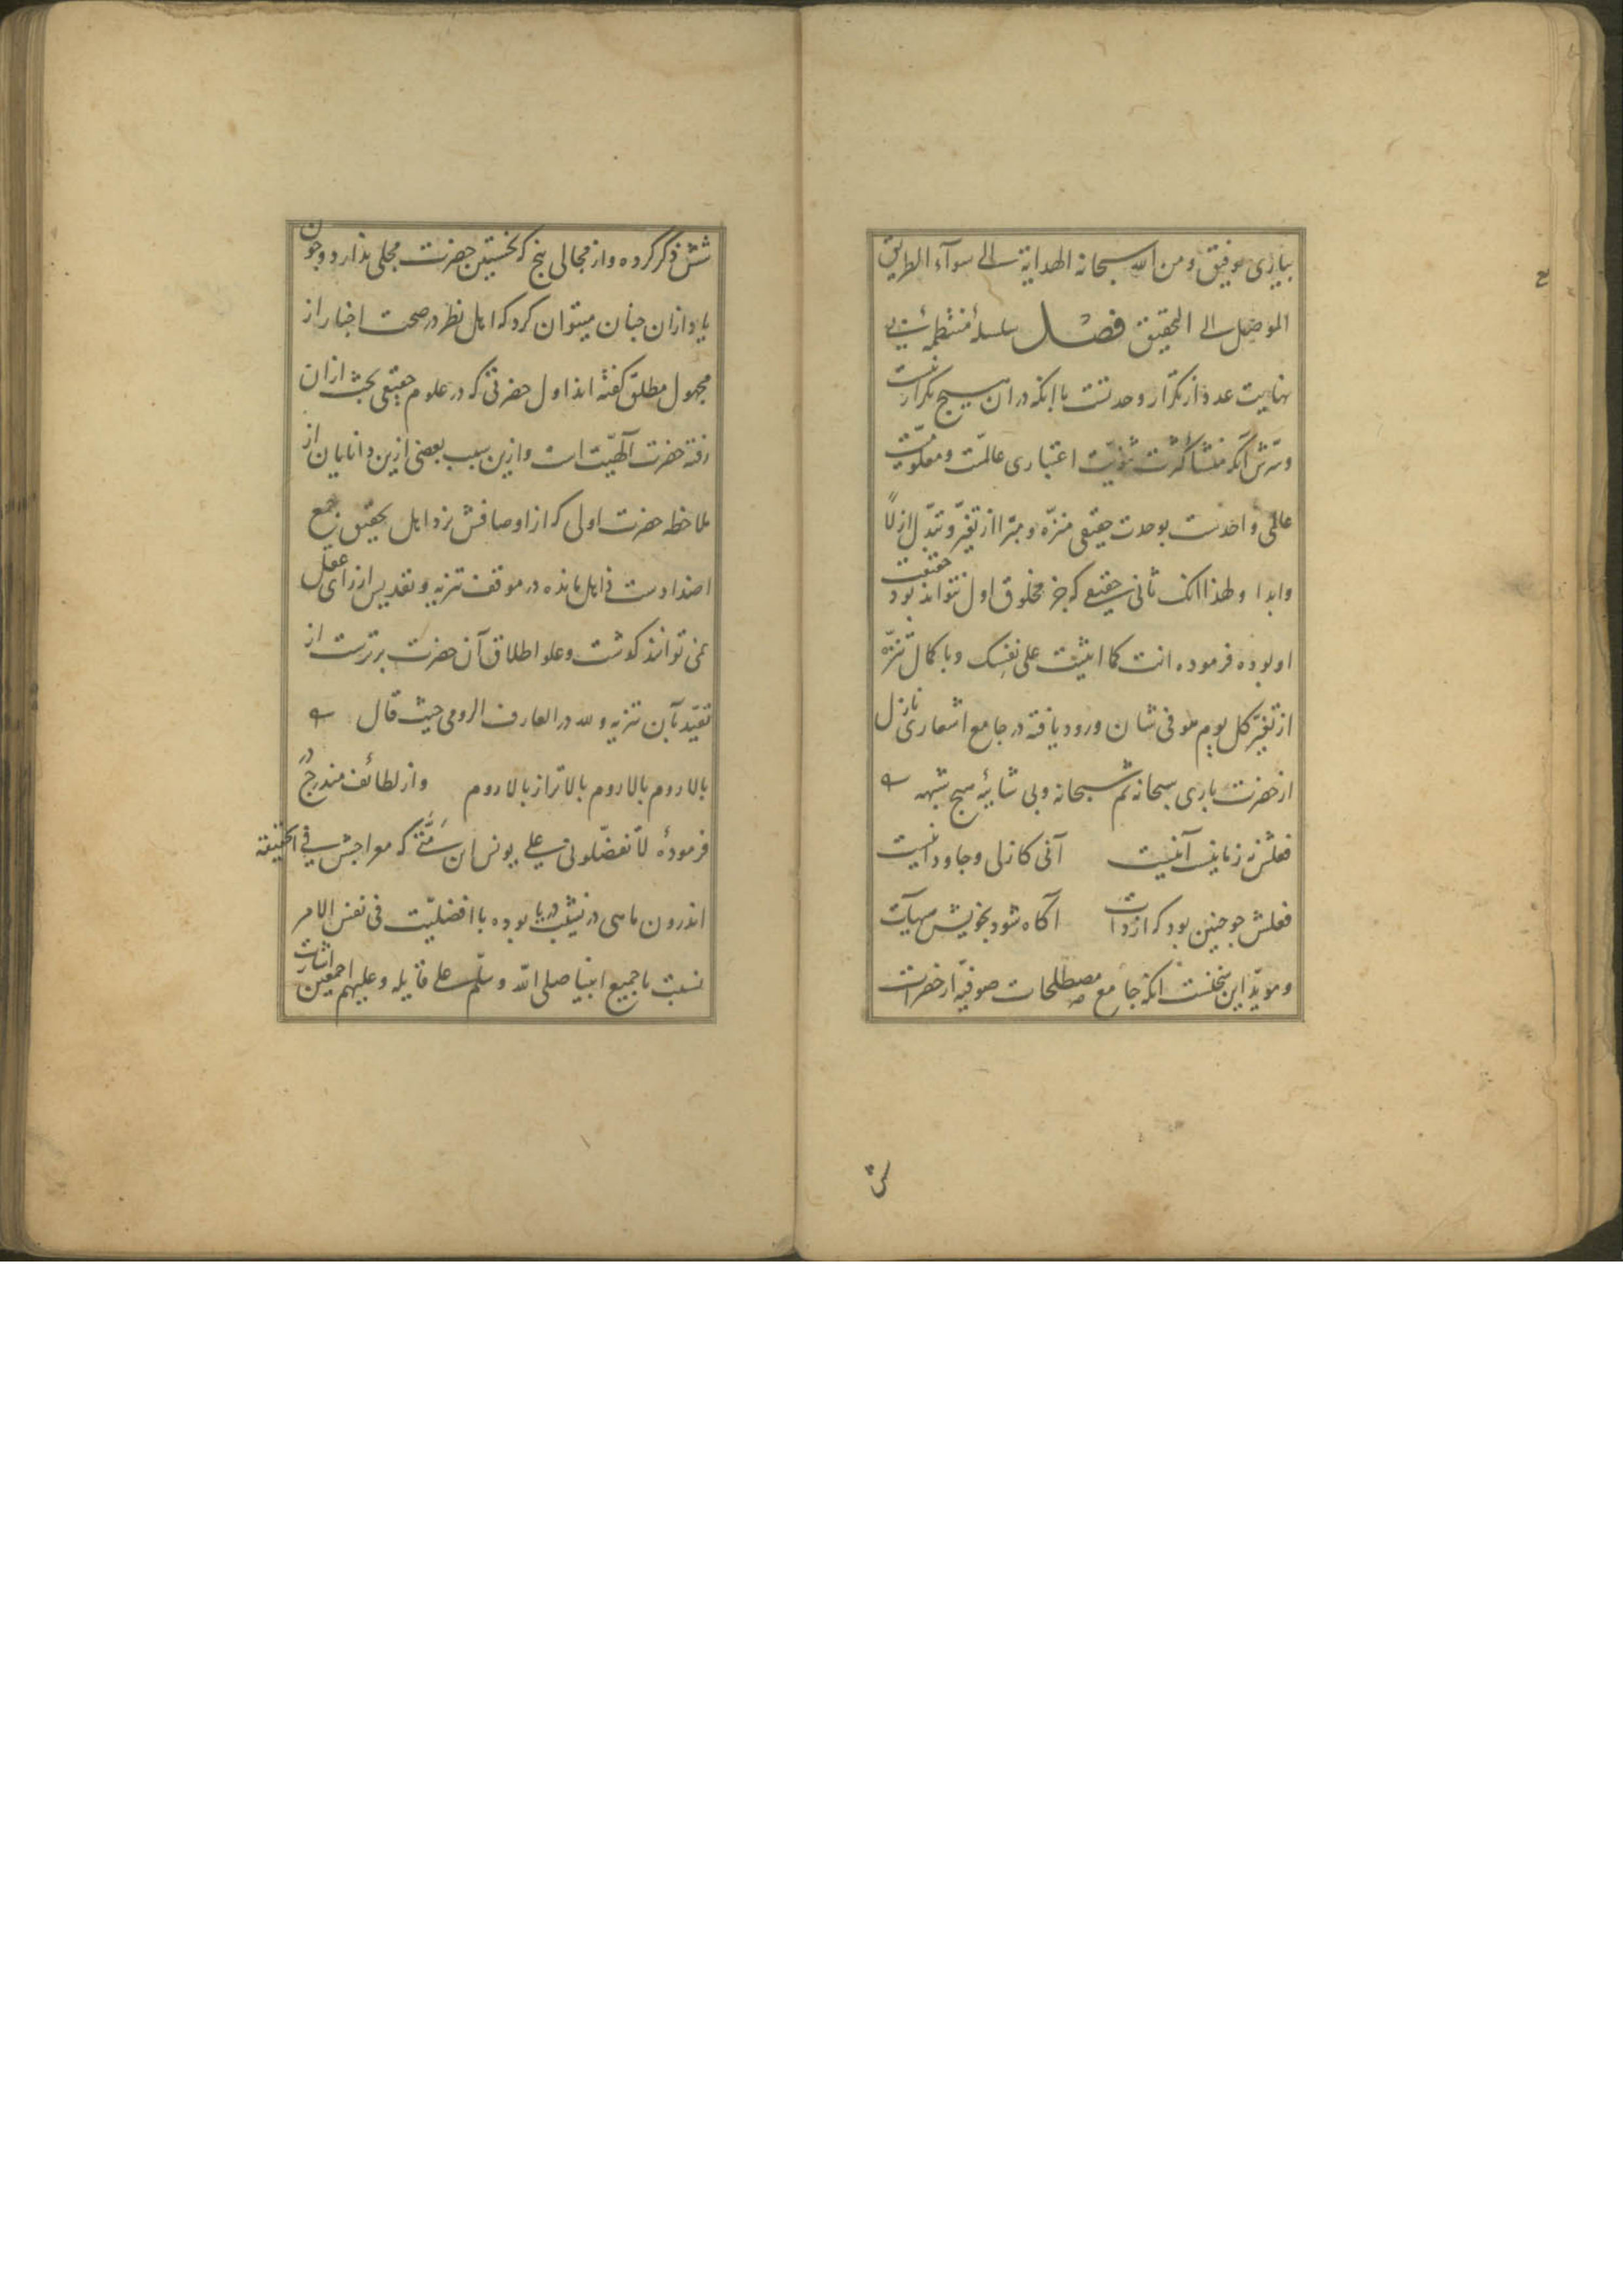 بیاری توفیق ومن الله سبحانه الهدایة الی سوآء الطریق
الموصل الی التحقیق فصل سلسلهٔ منتظمهٔ بی
نهایت عدد از تکرار وحدتست با آنکه در آن هیچ تکرار نیست
وسرش آنکه منشا کثرت ثنویّت اعتباری عالمیّت ومعلومیّت
عالمی واحدست بوحدت حقیقی منزّه ومبرّا از تغیّر وتبدّل ازلاً
وابدا ولهذا آنک ثانی حقیقی که جز مخلوق اول نتواند بود حقیقت
او بوده فرموده انت کما اثنیت علی نفسک وبا کمال تنزّه
از تغیّر کل یوم هو فی شان ورود یافته در جامع اشعاری نازل
از حضرت باری سبحانه ثم سبحانه وبی شایبهٔ هیچ شبهه
فعلش نه زمانیست آنیست آنی کازلی وجاودانیست
فعلش جو جنین بود که از ذات آکاه شود بخویش هیهات
ومویّد این سخنست آنکه جامع مصطلحات صوفیّه از حضرات
شش
شش ذکر کرده واز مجالی پنج که نخستین حضرت مجلی ندارد وجون
یاد ازان جنان میتوان کرد که اهل نظر در صحت اخبار از
مجهول مطلق کفته اند اول حضرتی که در علوم حقیقی بحث ازان
رفته حضرت آلهیّت است وازین سبب بعضی ازین دانایان از
ملاحظه حضرت اولی که از اوصافش نزد اهل تحقیق جمع
اضدادست ذاهل مانده در موقف تنزیه وتقدیس از رای عقل
نمی توانند کذشت وعلو اطلاق آن حضرت برترست از
تقیّد بآن تنزیه ولله در العارف الرومی حیث قال
بالا روم بالا روم بالاتر از بالا روم واز لطائف مندرج در
فرمودهٔ لا تفضّلونی علی یونس ابن متّی که معراجش فی الحقیقة
اندرون ماهی در نشیب دریا بوده با افضلیّت فی نفس الامر
نسبت با جمیع انبیا صلی الله وسلّم علی قایله وعلیهم اجمعین اشارت